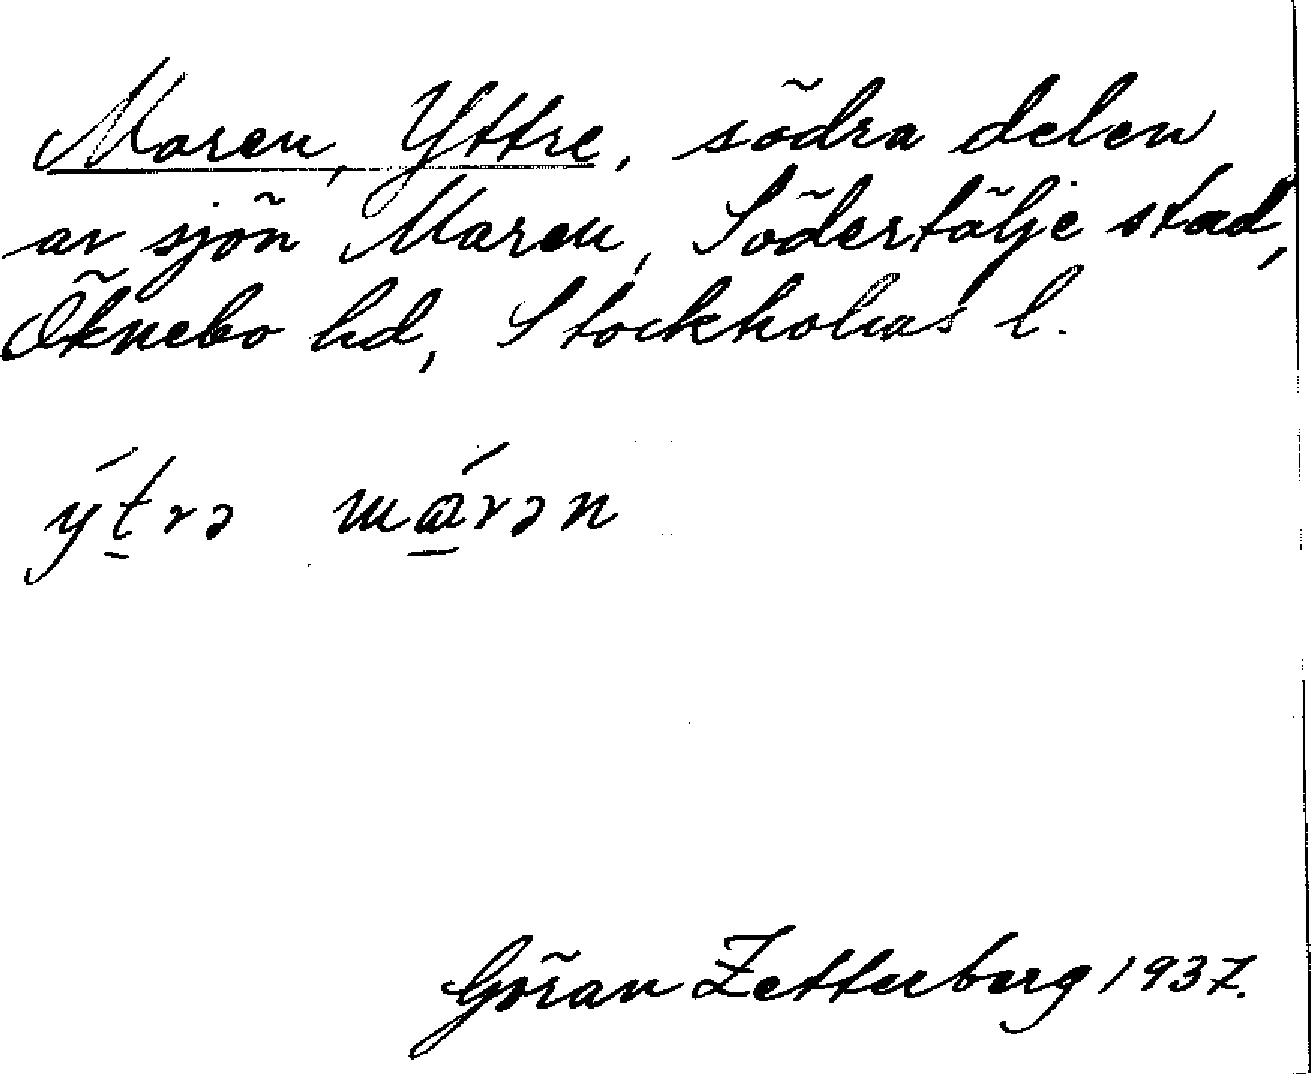 Maren, Yttre, södra delen
av sjön Maren, Södertälje stad,
Öknebo hd, Stockholms l.
ýt̠rə mɑ̠́rən
Göran Zetterberg 1937.